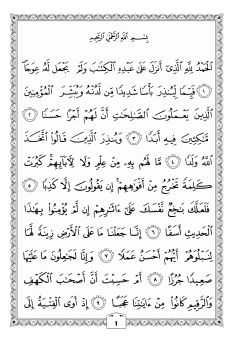 بِسْمِ اللَّهِ الرَّحْمَٰنِ الرَّحِيمِ
الْحَمْدُ لِلَّهِ الَّذِي أَنزَلَ عَلَىٰ عَبْدِهِ الْكِتَابَ وَلَمْ يَجْعَل لَّهُ عِوَجًا
١ قَيِّمًا لِّيُنذِرَ بَأْسًا شَدِيدًا مِّن لَّدُنْهُ وَيُبَشِّرَ الْمُؤْمِنِينَ
الَّذِينَ يَعْمَلُونَ الصَّالِحَاتِ أَنَّ لَهُمْ أَجْرًا حَسَنًا ٢
مَّاكِثِينَ فِيهِ أَبَدًا ٣ وَيُنذِرَ الَّذِينَ قَالُوا اتَّخَذَ
اللَّهُ وَلَدًا ٤ مَّا لَهُم بِهِ مِنْ عِلْمٍ وَلَا لِآبَائِهِمْ كَبُرَتْ
كَلِمَةً تَخْرُجُ مِنْ أَفْوَاهِهِمْ إِن يَقُولُونَ إِلَّا كَذِبًا ٥
فَلَعَلَّكَ بَاخِعٌ نَّفْسَكَ عَلَىٰ آثَارِهِمْ إِن لَّمْ يُؤْمِنُوا بِهَٰذَا
الْحَدِيثِ أَسَفًا ٦ إِنَّا جَعَلْنَا مَا عَلَى الْأَرْضِ زِينَةً لَّهَا
لِنَبْلُوَهُمْ أَيُّهُمْ أَحْسَنُ عَمَلًا ٧ وَإِنَّا لَجَاعِلُونَ مَا عَلَيْهَا
صَعِيدًا جُرُزًا ٨ أَمْ حَسِبْتَ أَنَّ أَصْحَابَ الْكَهْفِ
وَالرَّقِيمِ كَانُوا مِنْ آيَاتِنَا عَجَبًا ٩ إِذْ أَوَى الْفِتْيَةُ إِلَى
1